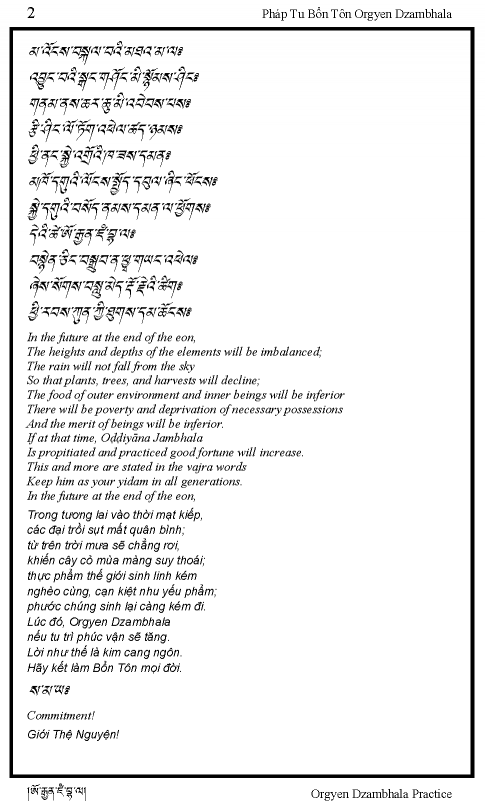 2 Pháp Tu Bổn Tôn Orgyen Dzambhala
མ་འོངས་བསྐལ་བའི་མཐའ་མ་ལ༔
འབྱུང་བའི་སྒང་གཤོང་མི་སྙོམས་ཤིང༔
གནམ་ནས་ཆར་ཆུ་མི་འབེབས་པས༔
རྩི་ཤིང་ལོ་ཏོག་འཕེལ་ཚད་ཉམས༔
ཕྱི་ནང་སྐྱེ་འགྲོའི་ཁ་ཟས་དམན༔
མཁོ་དགུའི་ལོངས་སྤྱོད་དབུལ་ཞིང་ཕོངས༔
སྐྱེ་དགུའི་བསོད་ནམས་དམན་ལ་ཕྱོགས༔
དེའི་ཚེ་ཨོ་རྒྱན་ཛཾ་བྷ་ལ༔
བསྙེན་ཅིང་བསྒྲུབ་ན་ཕྱྭ་གཡང་འཕེལ༔
ཞེས་སོགས་བསླུ་མེད་རྡོ་རྗེའི་ཚིག༔
ཕྱི་རབས་ཀུན་ཀྱི་ཐུགས་དམ་ཆོངས༔
In the future at the end of the eon,
The heights and depths of the elements will be imbalanced;
The rain will not fall from the sky
So that plants, trees, and harvests will decline;
The food of outer environment and inner beings will be inferior
There will be poverty and deprivation of necessary possessions
And the merit of beings will be inferior.
If at that time, Oḍḍiyāna Jambhala
Is propitiated and practiced good fortune will increase.
This and more are stated in the vajra words
Keep him as your yidam in all generations.
In the future at the end of the eon,
Trong tương lai vào thời mạt kiếp,
các đại trồi sụt mất quân bình;
từ trên trời mưa sẽ chẳng rơi,
khiến cây cỏ mùa màng suy thoái;
thực phẩm thế giới sinh linh kém
nghèo cùng, cạn kiệt nhu yếu phẩm;
phước chúng sinh lại càng kém đi.
Lúc đó, Orgyen Dzambhala
nếu tu trì phúc vận sẽ tăng.
Lời như thế là kim cang ngôn.
Hãy kết làm Bổn Tôn mọi đời.
ས་མ་ཡ༔
Commitment!
Giới Thệ Nguyện!
།ཨོ་རྒྱན་ཛཾ་བྷ་ལ། Orgyen Dzambhala Practice